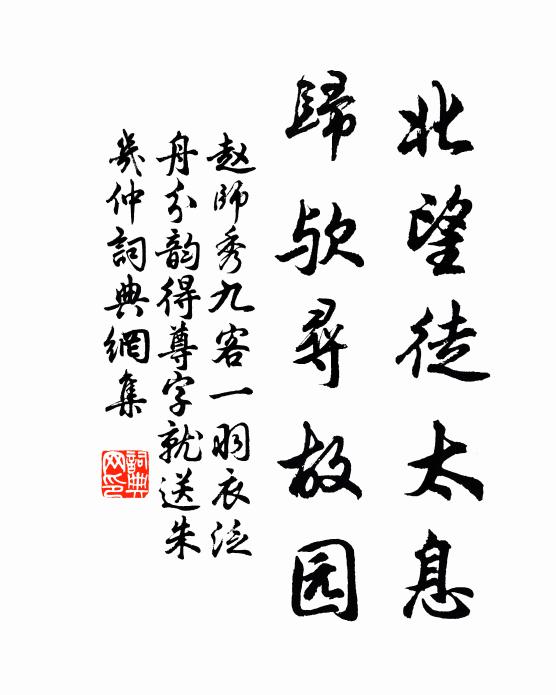 北望徒太息
歸欤尋故园
赵師秀九客一羽衣泛
舟分韵得尊字就送朱
幾仲詞典網集
詞典网印